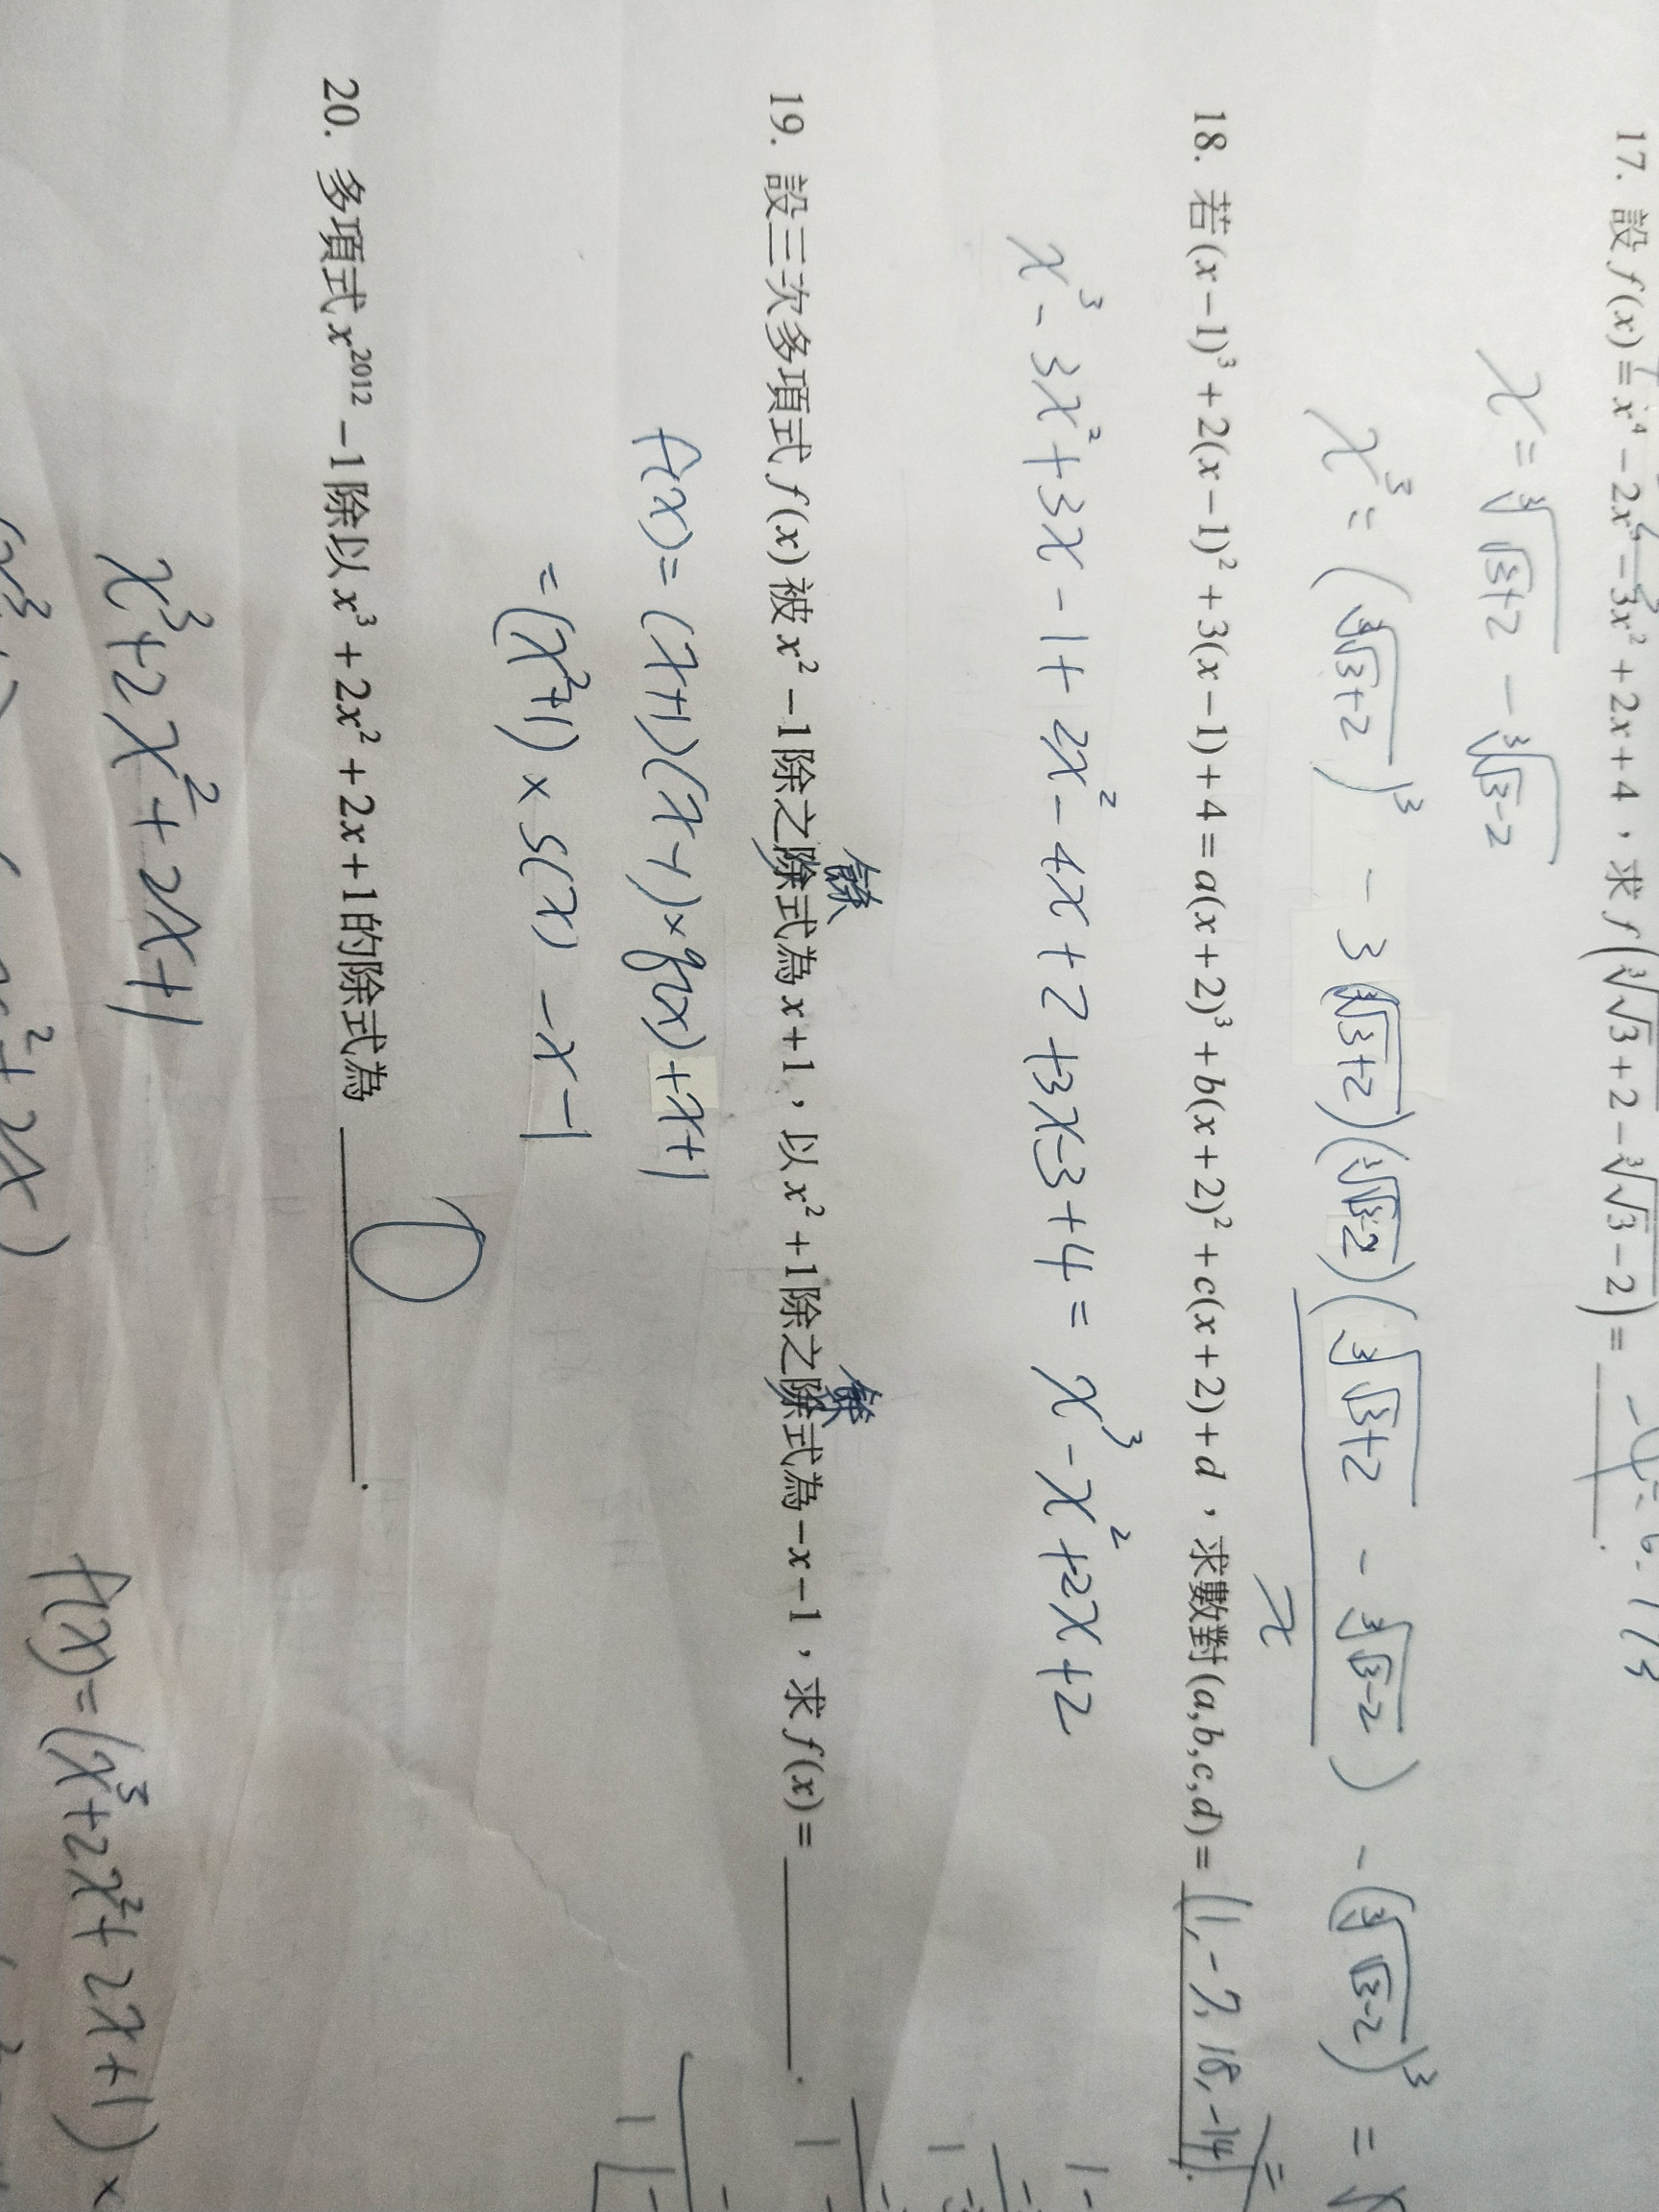 17. 設 f(x)=x⁴-2x³-3x²+2x+4，求 f(∛(√3+2)-∛(√3-2))=
x=∛(√3+2) - ∛(√3-2)
x³=(∛(√3+2))³ - 3(∛(√3+2))(∛(√3-2))(∛(√3+2) - ∛(√3-2)) - (∛(√3-2))³ =
x
18. 若(x-1)³+2(x-1)²+3(x-1)+4=a(x+2)³+b(x+2)²+c(x+2)+d，求數對(a,b,c,d)= (1,-7,18,-14).
x³-3x²+3x-1+2x²-4x+2+3x-3+4= x³-x²+2x+2
餘 餘
19. 設三次多項式 f(x) 被 x²-1除之除式為 x+1，以 x²+1除之除式為-x-1，求 f(x)=　　.
f(x)=(x+1)(x-1)×q(x)+x+1
=(x²+1)×s(x)-x-1
20. 多項式 x²⁰¹²-1除以 x³+2x²+2x+1的除式為 0.
x³+2x²+2x+1
f(x)=(x³+2x²+2x+1)×